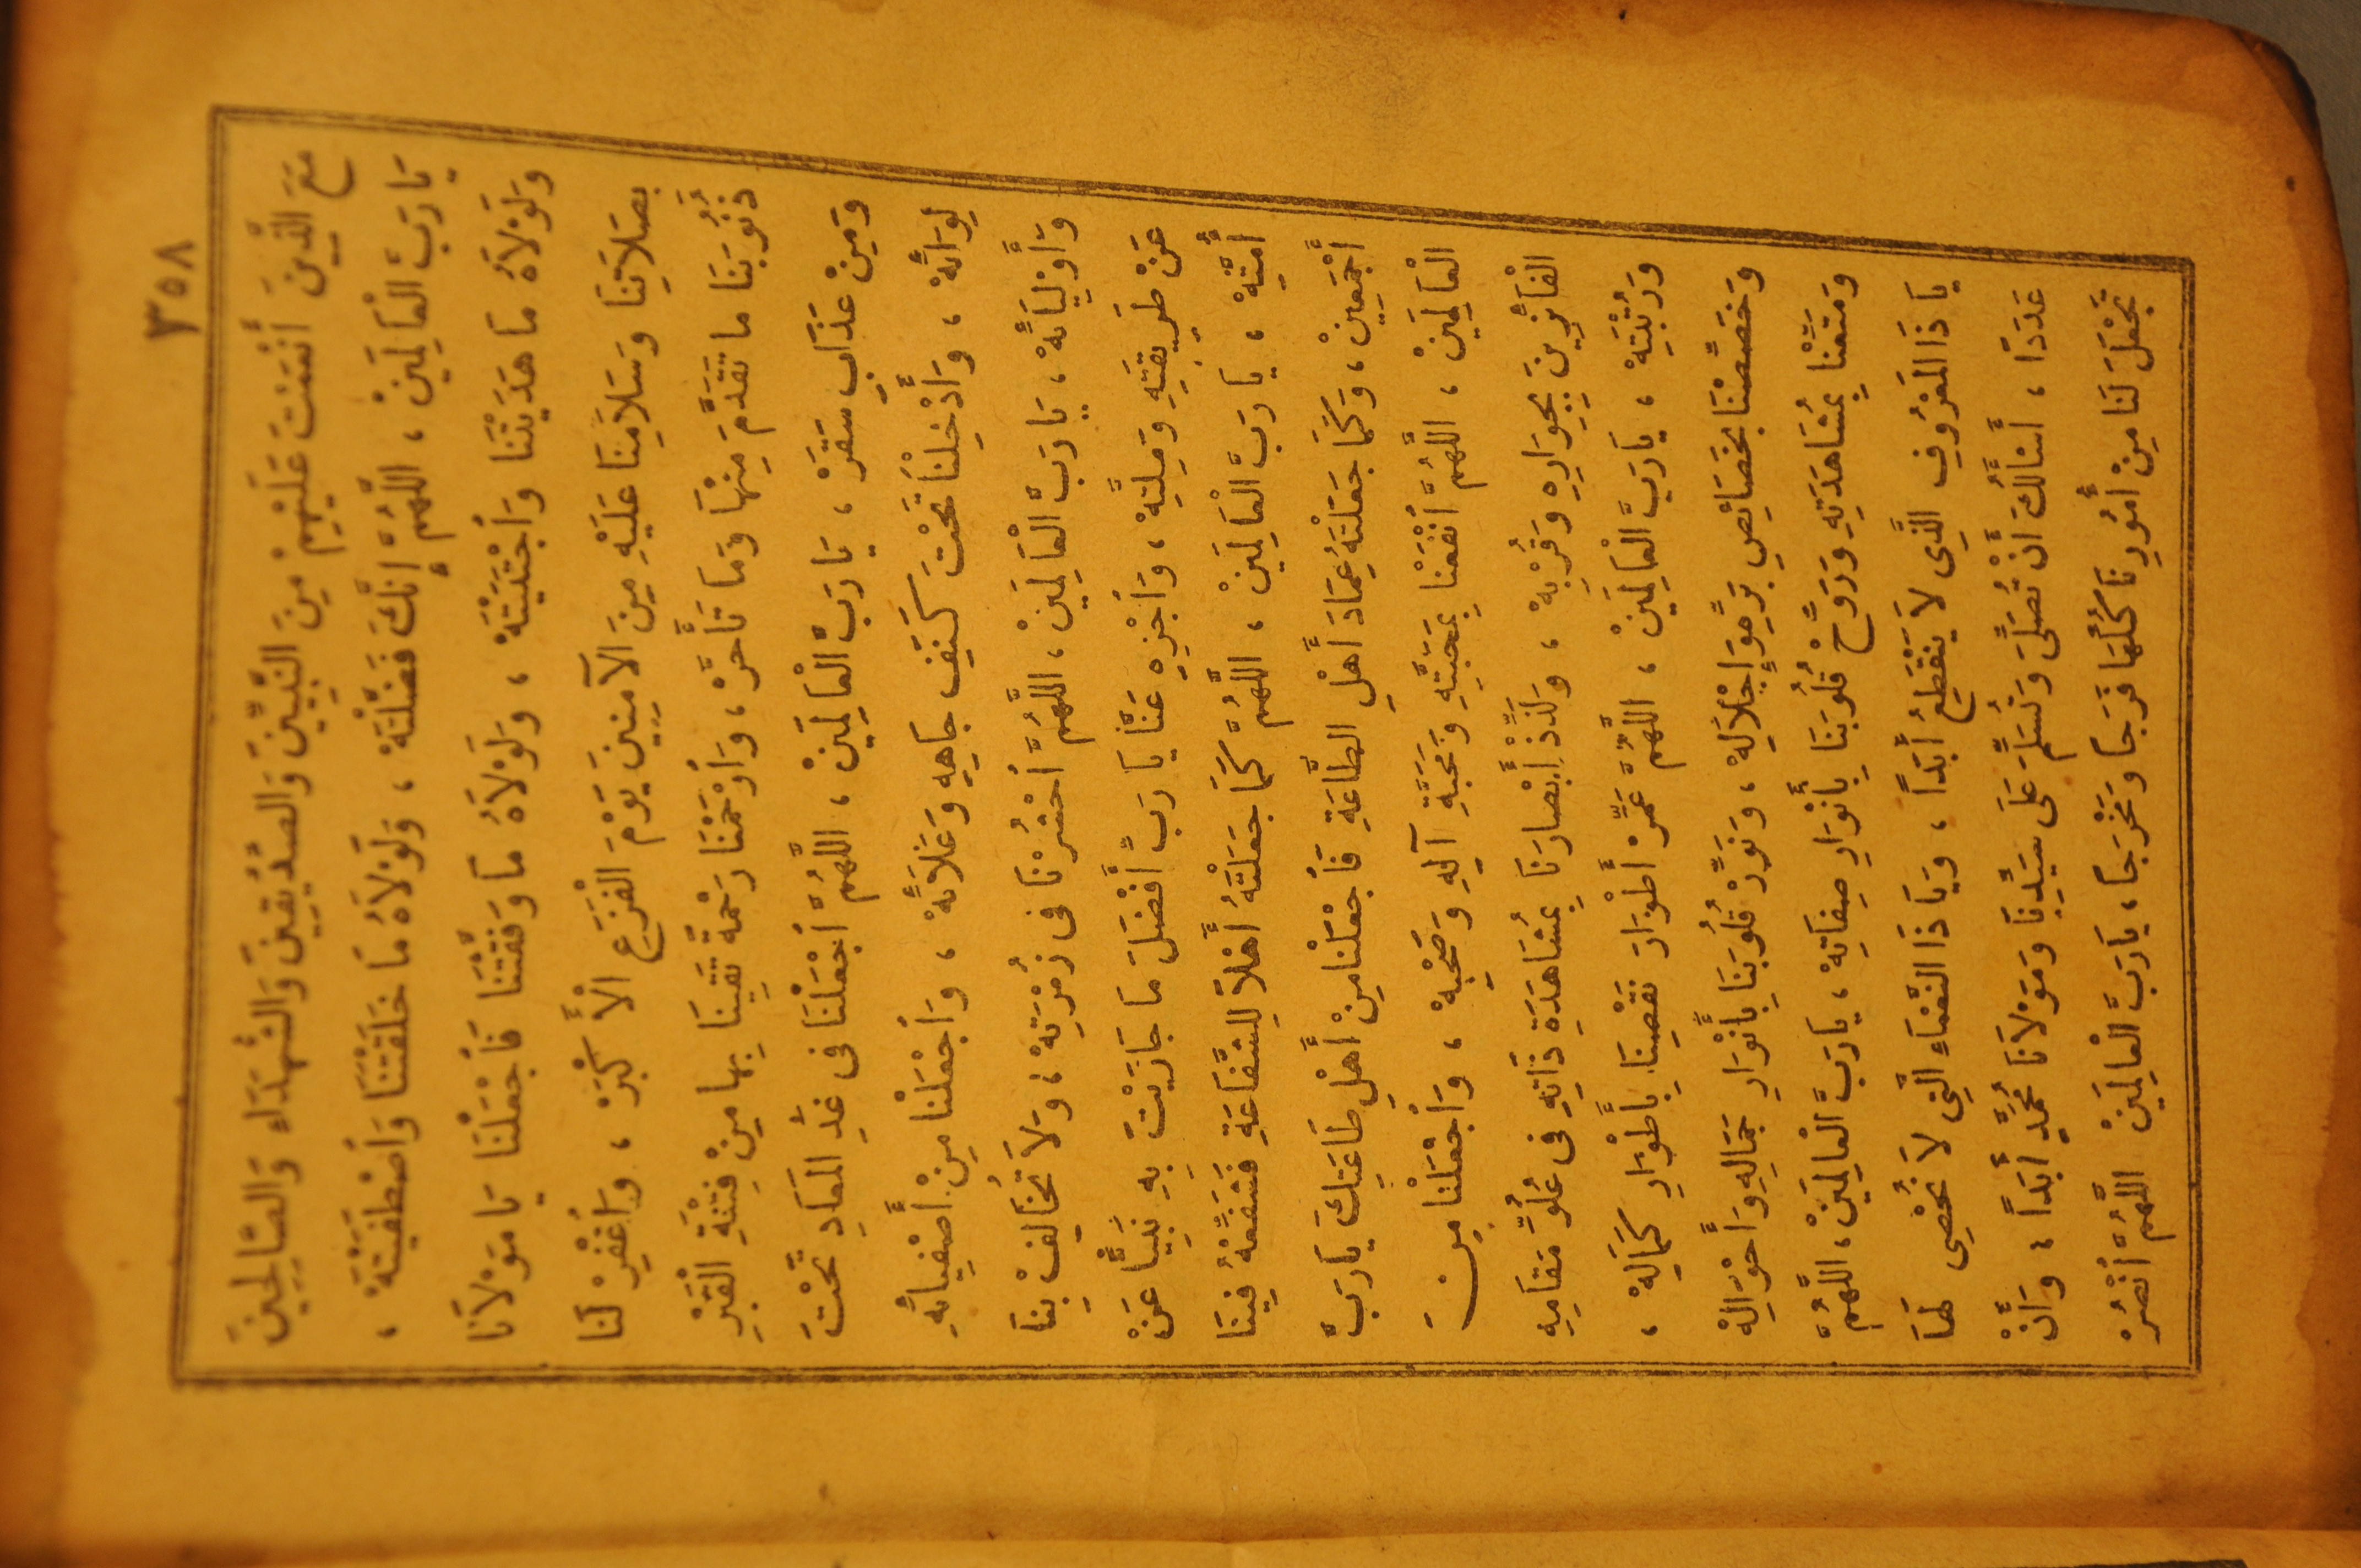 ٣٥٨
مَعَ الَّذِينَ أَنْعَمْتَ عَلَيْهِمْ مِنَ النَّبِيِّنَ وَالصِّدِّيقِينَ وَالشُّهَدَاءِ وَالصَّالِحِينَ
يَارَبَّ الْعَالَمِينْ ، اللَّهُمَّ إِنَّكَ فَضَّلْتَهْ ، وَلَوْلَاهُ مَا خَلَقْتَنَا وَاصْطَفَيْتَهْ ،
وَلَوْلَاهُ مَا هَدَيْتَنَا وَاجْتَبَيْتَهْ ، وَلَوْلَاهُ مَا وَفَّقْتَنَا فَاجْعَلْنَا يَا مَوْلَانَا
بِصَلَاتِنَا وَسَلَامِنَا عَلَيْهِ مِنَ الْآمِنِينَ يَوْمَ الْفَزَعِ الْأَكْبَرْ ، وَاغْفِرْ لَنَا
ذُنُوبَنَا مَا تَقَدَّمَ مِنْهَا وَمَا تَأَخَّرْ ، وَارْحَمْنَا رَحْمَةً تَقِينَا بِهَا مِنْ فِتْنَةِ الْقَبْرِ
وَمِنْ عَذَابِ سَقَرْ ، يَارَبَّ الْعَالَمِينْ ، اللَّهُمَّ اجْعَلْنَا فِى غَدِ الْمَعَادِ تَحْتَ
لِوَائِهْ ، وَأَدْخِلْنَا تَحْتَ كَنَفِ جَاهِهِ وَعَلَائِهْ ، وَاجْعَلْنَا مِنْ أَصْفِيَائِهِ
وَأَوْلِيَائِهْ ، يَارَبَّ الْعَالَمِينْ ، اللَّهُمَّ احْشُرْنَا فِى زُمْرَتِهْ ، وَلَا تُخَالِفْ بِنَا
عَنْ طَرِيقَتِهِ وَمِلَّتِهْ ، وَاجْزِهِ عَنَّا يَا رَبِّ أَفْضَلَ مَا جَازَيْتَ بِهِ نَبِيًّا عَنْ
أُمَّتِهْ ، يَارَبَّ الْعَالَمِينْ ، اللَّهُمَّ كَمَا جَعَلْتَهُ أَهْلًا لِلشَّفَاعَةِ فَشَفِّعْهُ فِينَا
أَجْمَعِينْ ، وَكَمَا جَعَلْتَهُ عِمَادَ أَهْلِ الطَّاعَةِ فَاجْعَلْنَا مِنْ أَهْلِ طَاعَتِكَ يَارَبَّ
الْعَالَمِينْ ، اللَّهُمَّ انْفَعْنَا بِمَحَبَّتِهِ وَمَحَبَّةِ آلِهِ وَصَحْبِهْ ، وَاجْعَلْنَا مِنَ
الْفَائِزِينَ بِجِوَارِهِ وَقُرْبِهْ ، وَلَذِّذْ أَبْصَارَنَا بِمُشَاهَدَةِ ذَاتِهِ فِى عُلُوِّ مَقَامِهِ
وَرُتْبَتِهْ ، يَارَبَّ الْعَالَمِينْ ، اللَّهُمَّ عَمِّرْ أَطْوَارَ نَقْصِنَا بِأَطْوَارِ كَمَالِهْ ،
وَخَصِّصْنَا بِخَصَائِصِ بَرِّهِ وَإِجْلَالِهْ ، وَنَوِّرْ قُلُوبَنَا بِأَنْوَارِ جَمَالِهِ وَأَحْوَالِهْ
وَمَتِّعْنَا بِمُشَاهَدَتِهِ وَرَوِّحْ قُلُوبَنَا بِأَنْوَارِ صِفَاتِهْ ، يَارَبَّ الْعَالَمِينْ ، اللَّهُمَّ
يَا ذَا الْمَعْرُوفِ الَّذِى لَا يَنْقَطِعُ أَبَدًا ، وَيَا ذَا النَّعْمَاءِ الَّتِى لَا تُحْصِى لَهَا
عَدَدًا ، أَسْأَلُكَ أَنْ تُصَلِّىَ وَتُسَلِّمَ عَلَى سَيِّدِنَا وَمَوْلَانَا مُحَمَّدٍ أَبَدًا ، وَأَنْ
تَجْعَلَ لَنَا مِنْ أُمُورِنَا كُلِّهَا فَرَجًا وَمَخْرَجًا ، يَارَبَّ الْعَالَمِينْ اللَّهُمَّ انْصُرْ